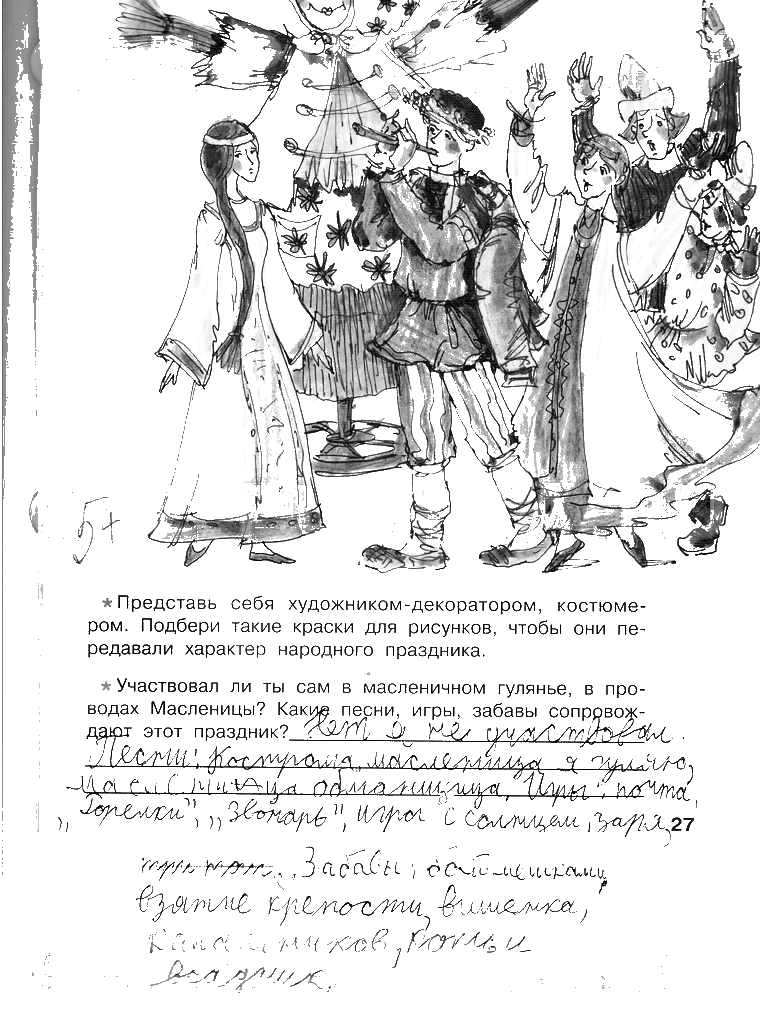 5+
*Представь себя художником-декоратором, костюме-
ром. Подбери такие краски для рисунков, чтобы они пе-
редавали характер народного праздника.
*Участвовал ли ты сам в масленичном гулянье, в про-
водах Масленицы? Какие песни, игры, забавы сопровож-
дают этот праздник? Нет я не участвовал.
Песни: Кострома, масленица я гуляю,
Масленница обманщица. Игры: почта,
"Горелки", "Звонарь", игры с солнцем, заря,
27
Забавы:
взятие крепости, вишенка,